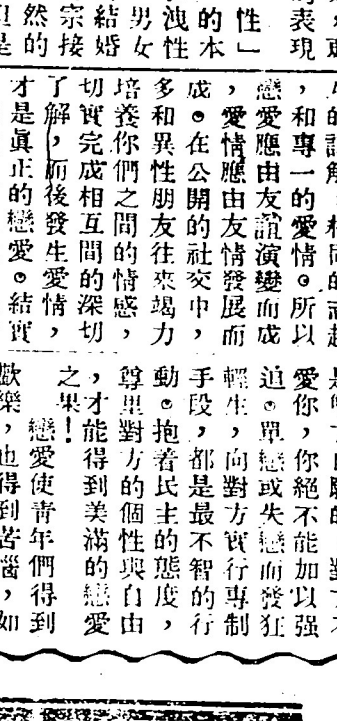 的表現
性」
的本
洩性
男女
結婚
宗接
然的
但是
的諒解，相同的志趣
，和專一的愛情。所以
戀愛應由友誼演變而成
，愛情應由友情發展而
成。在公開的社交中，
多和異性朋友往來竭力
培養你們之間的情感，
切實完成相互間的深切
了解，而後發生愛情，
才是眞正的戀愛。結實
愛你，你絕不能加以强
迫。單戀或失戀而發狂
輕生，向對方實行專制
手段，都是最不智的行
動。抱着民主的態度，
尊重對方的個性與自由
，才能得到美滿的戀愛
之果！
戀愛使靑年們得到
歡樂，也得到苦惱，如